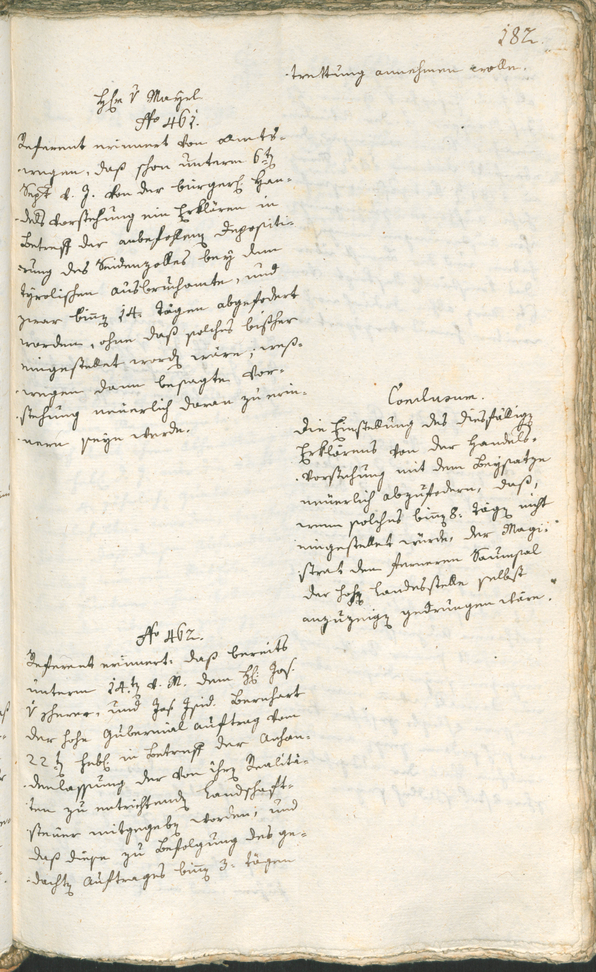 182.
trettung annehmen wolle.
H:hr v Mayrl
No 461.
Referent erinnert von Amts-
wegen, daß schon unterm 6ten
Sept v. J. von der bürgerl. Han-
dels Vorstehung ein Erklären in
Betreff der anbefohlenen Depositi-
rung des Seidenzolles bey dem
tyrolischen Ausbruchamte, und
zwar binnen 14. Tägen abgefodert
worden, ohne daß solches bißher
eingestellet worden wäre, wes-
wegen dann besagte Vor-
stehung neuerlich daran zu erin-
nern seyn werde.
Conclusum.
Die Einstellung des diesfälligen
Erklärens von der Handels-
Vorstehung mit dem Beysatze
neuerlich abzufodern, daß,
wenn solches binnen 8. tägen nicht
eingestellet würde, der Magi-
strat den ferneren Saumsal
der hohen Landesstelle selbst
anzuzeigen gedrungen wäre.
No 462.
Referent erinnert: daß bereits
unterm 14ten d. M. dem H: Jos.
v und Jos. Isid. Bernhart
der hohe Gubernial Auftrag vom
22ten in Betreff der
der von ihren Realitä-
ten zu entrichtenden Landschaft-
steuer mitgegeben worden, und
daß diese zu Befolgung des ge-
dachten Auftrages binnen 3. tägen